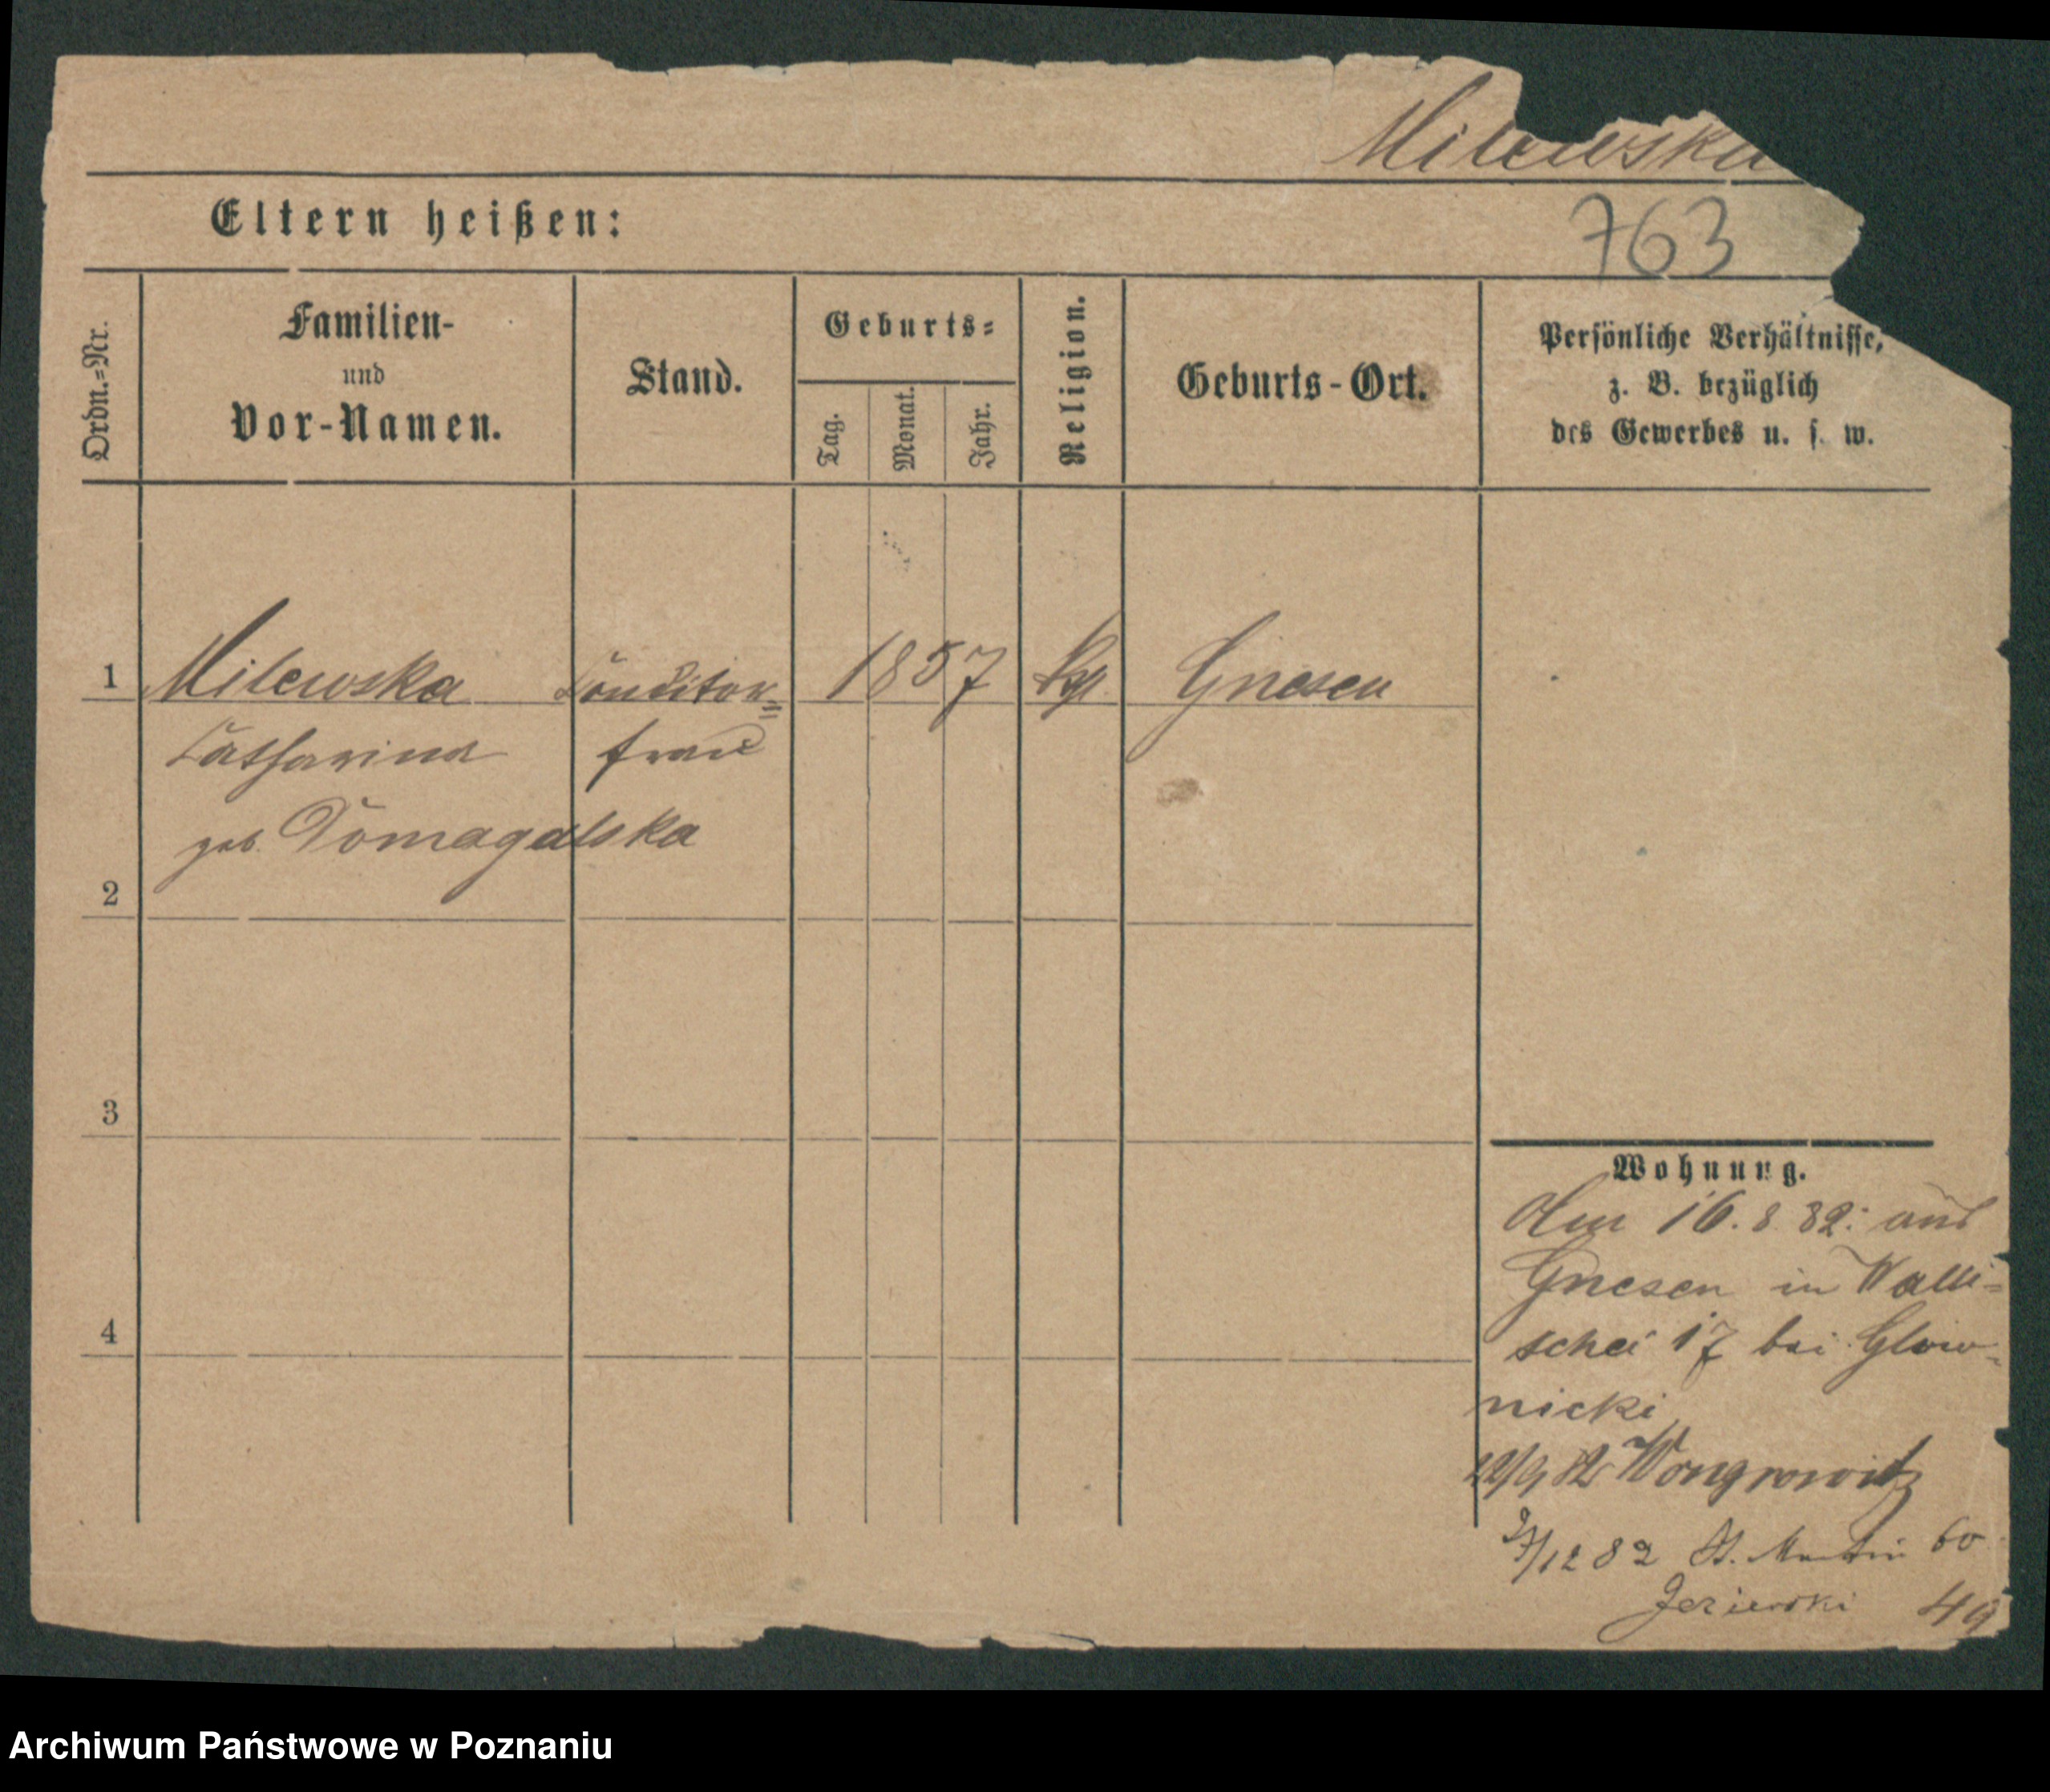 Milewska
Eltern heißen:
763
Ordn.=Nr.
Familien-
und
Vor-Namen.
Stand.
Geburts=
Tag.
Monat.
Jahr.
Religion.
Geburts-Ort.
Persönliche Verhältnisse,
z. B. bezüglich
des Gewerbes u. s. w.
1 Milewska Conditor= 1857 Gnesen
Catharina frau
geb. Domagalska
2
3
4
Wohnung.
Am 16. 8. 82: aus
Gnesen in Walli=
schei 17 bei Glow=
nicki
22/9 82 Wongrowitz
/12 82 St. Martin 60
Jeziewski 49
Archiwum Państwowe w Poznaniu